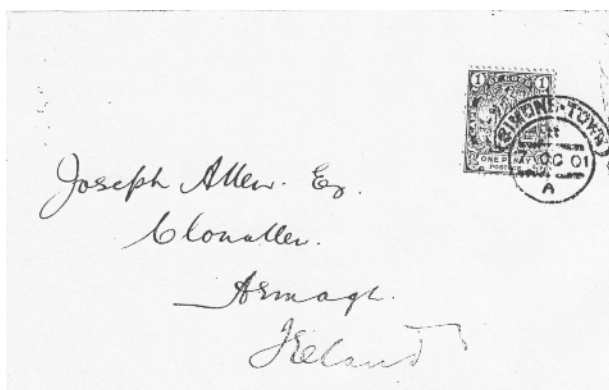 1 1
ONE PENNY
POSTAGE
SIMONS-TOWN
7 OC 01
A
Joseph Allen. Esq.
Clonallen.
Armagh.
Ireland